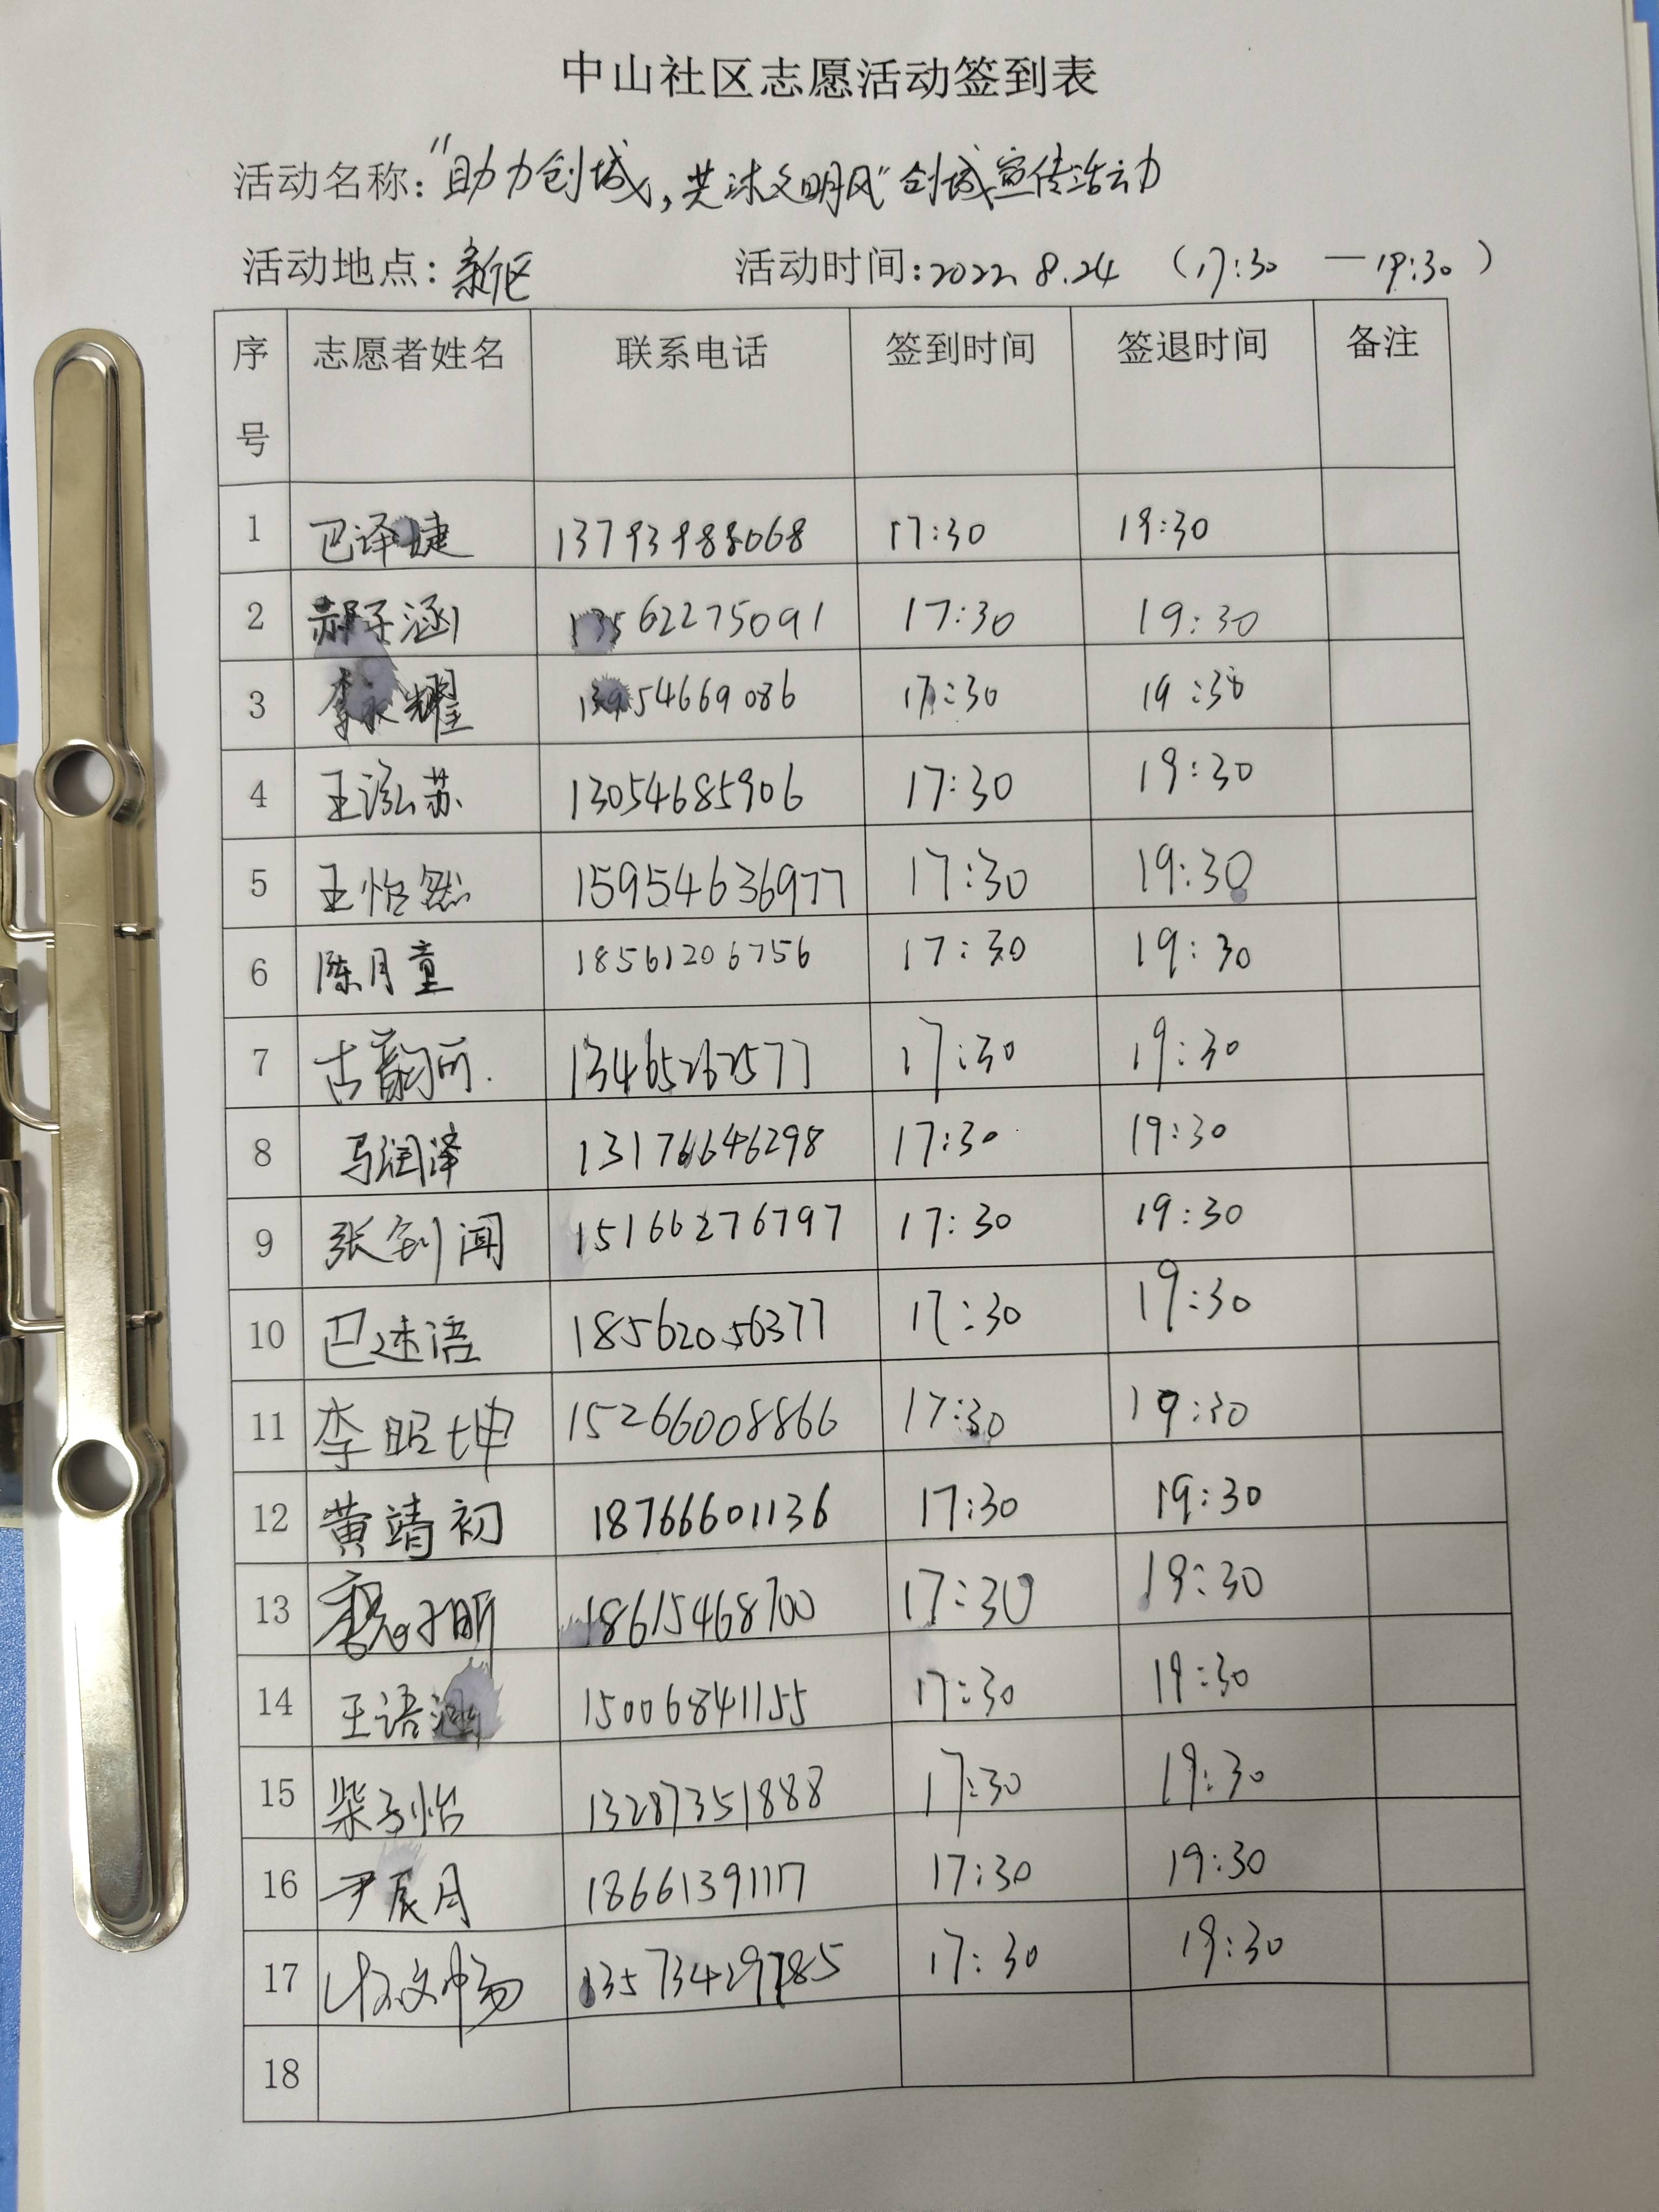 中山社区志愿活动签到表
活动名称:"助力创城,共沐文明风"创城宣传活动
活动地点: 活动时间:2022.8.24 (17:30 —19:30)
序号 志愿者姓名 联系电话 签到时间 签退时间 备注
1 巴译婕 13793988068 17:30 19:30
2 郝子涵 13562275091 17:30 19:30
3 李永耀 13954669086 17:30 19:30
4 王泓苏 13054685906 17:30 19:30
5 王怡然 15954636977 17:30 19:30
6 陈月童 18561206756 17:30 19:30
7 古韵 13465262577 17:30 19:30
8 马润泽 13176646298 17:30 19:30
9 张剑闻 15166276797 17:30 19:30
10 巴述语 18562056377 17:30 19:30
11 李昭坤 15266008866 17:30 19:30
12 黄靖初 18766601136 17:30 19:30
13 18615468700 17:30 19:30
14 王语涵 15006841155 17:30 19:30
15 柴子怡 13287351888 17:30 19:30
16 尹辰月 18661391117 17:30 19:30
17 13573429785 17:30 19:30
18